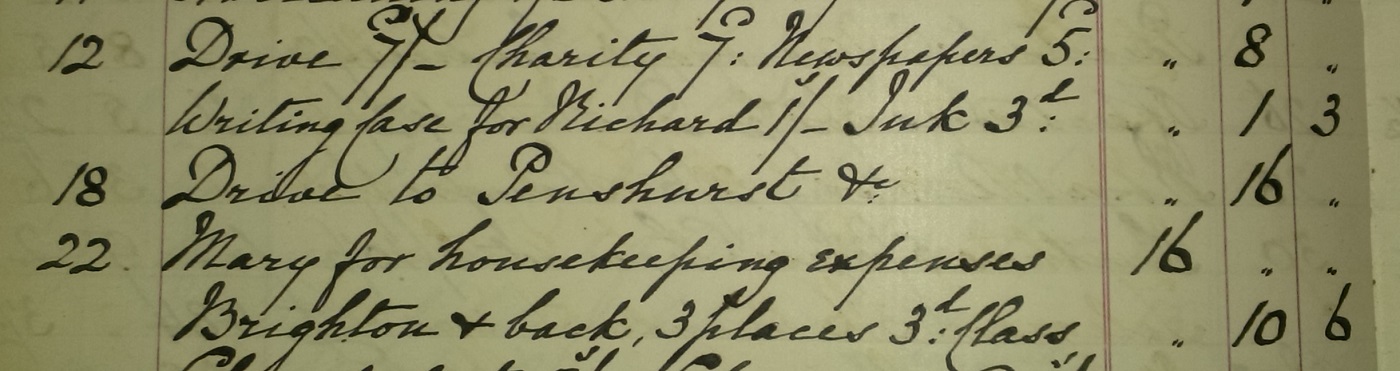 12 Drive 7/- Charity 7: Newspapers 5: " 8 "
Writing Case for Richard 1/- Ink 3d " 1 3
18 Drive to Penshurst &c " 16 "
22. Mary for housekeeping expenses 16 " "
Brighton & back, 3 places 3d: Class " 10 6